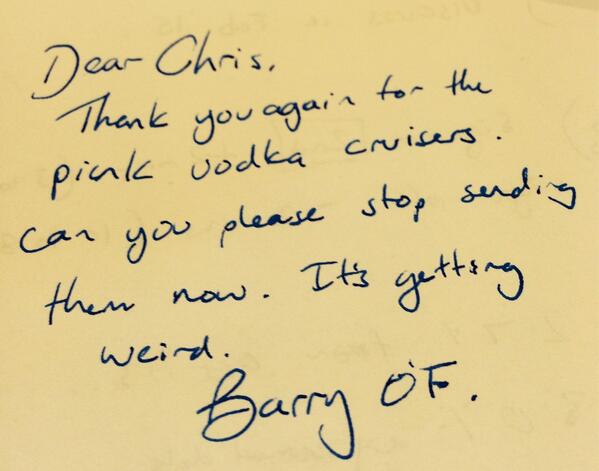 Dear Chris,
Thank you again for the
pink vodka cruisers.
Can you please stop sending
them now. It's getting
weird.
Barry O'F.